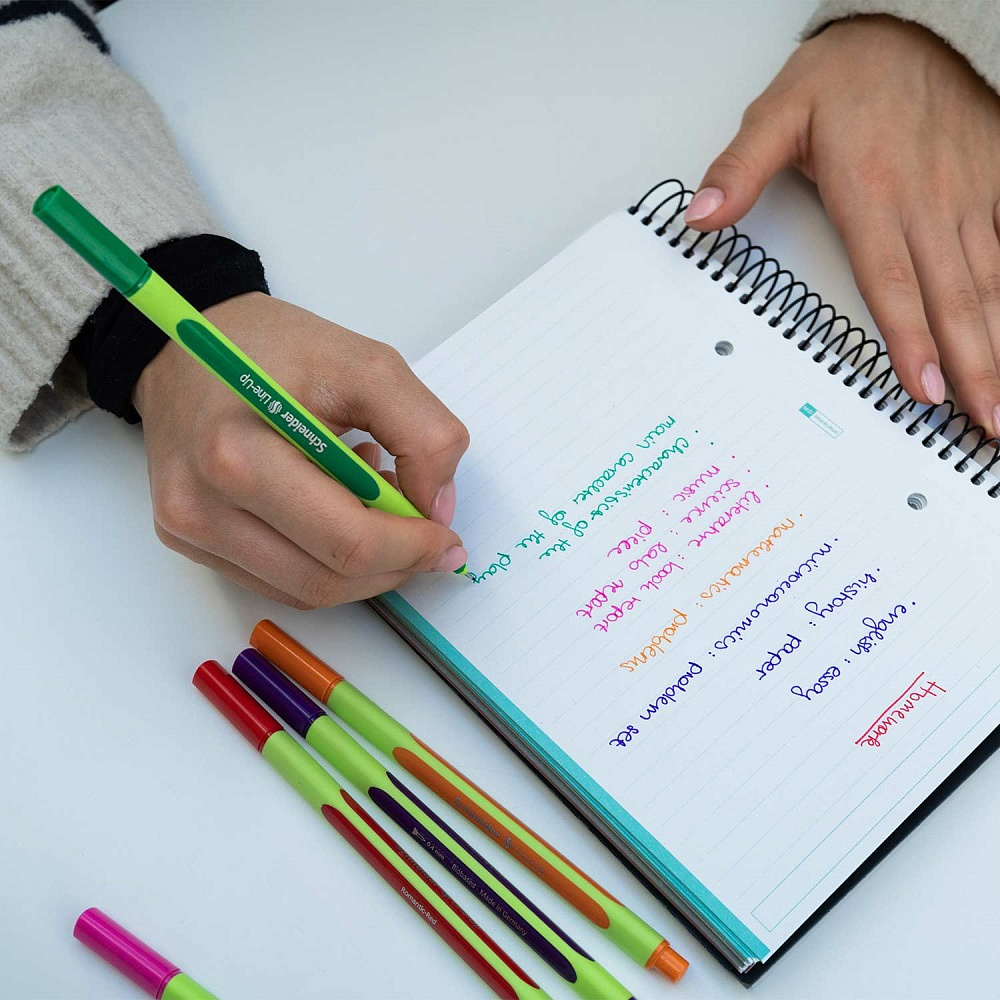 Homework
• english : essay
• history : paper
• microeconomics : problem set
• mathematics : problems
• literature : book report
science : lab report
• music : piece
• characteristics of the
main caracter of the play
Schneider Line-Up
0.4 mm Biobased · Made in Germany
Romantic-Red